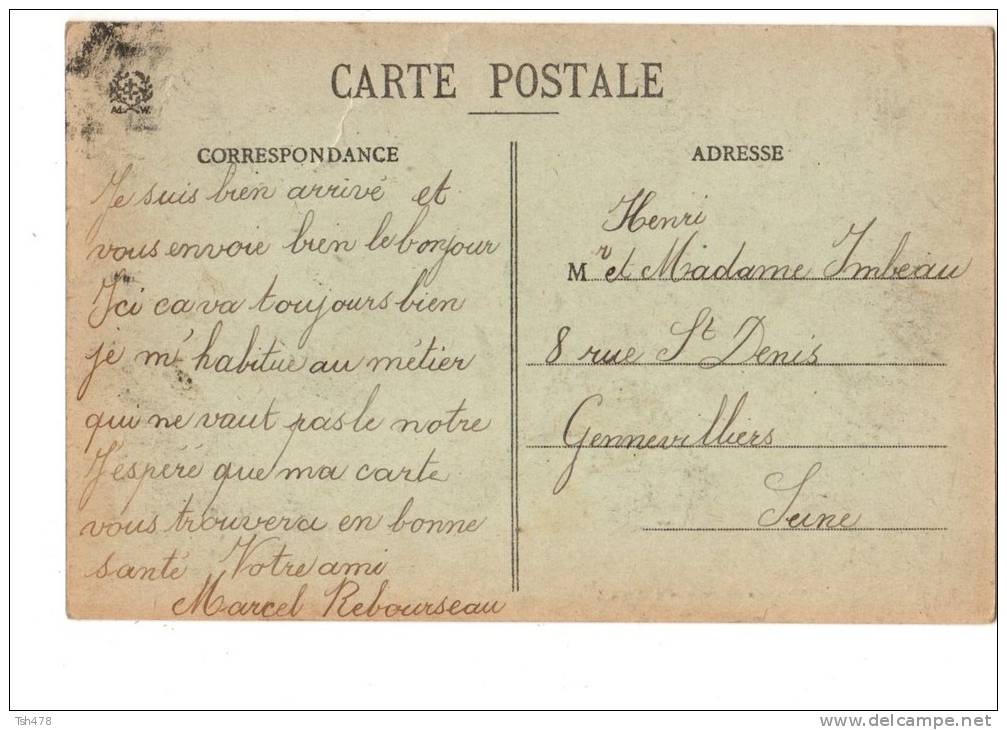 CARTE POSTALE
M. W.
CORRESPONDANCE
Je suis bien arrivé et
vous envoie bien le bonjour
Ici ca va toujours bien
je m'habitue au métier
qui ne vaut pas le notre
J'espére que ma carte
vous trouvera en bonne
santé Votre ami
Marcel Rebourseau
ADRESSE
Henri
Mr et Madame Imbeau
8 rue St Denis
Gennevilliers
Seine
Tsh478
www.delcampe.net